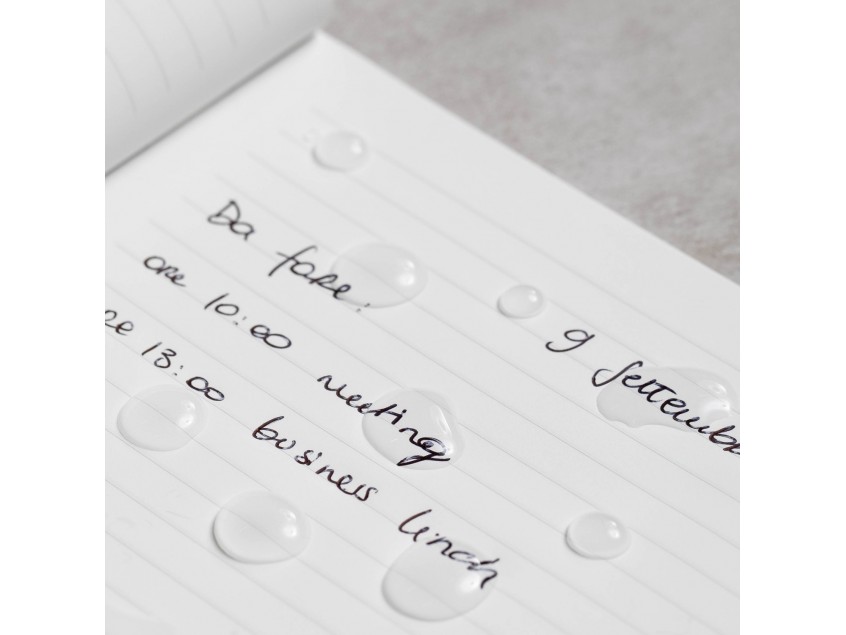 Da fare:
9 Settemb
ore 10:00 meeting
re 13:00 business lunch